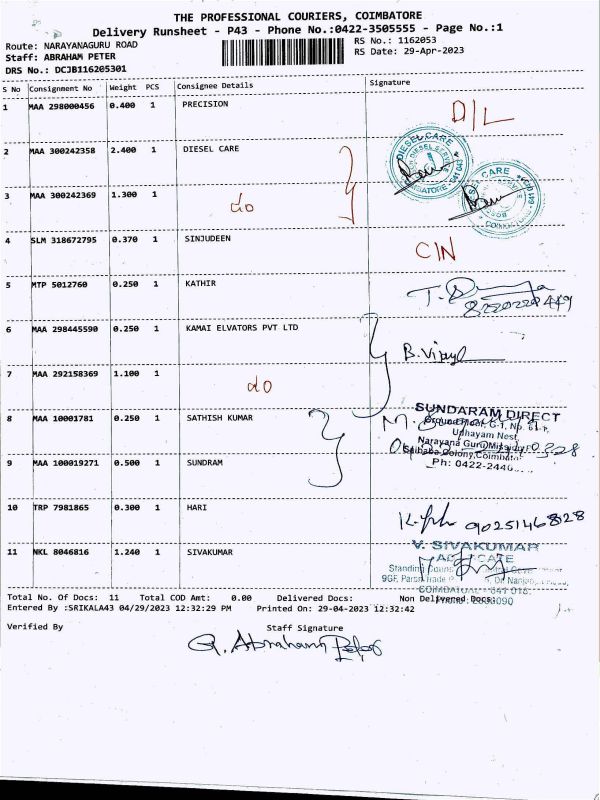 THE PROFESSIONAL COURIERS, COIMBATORE
Delivery Runsheet - P43 - Phone No.:0422-3505555 - Page No.:1
Route: NARAYANAGURU ROAD
RS No.: 1162053
Staff: ABRAHAM PETER
RS Date: 29-Apr-2023
DRS No.: DCJB116205301
S No Consignment No Weight PCS Consignee Details Signature
1 MAA 298000456 0.400 1 PRECISION D/L
2 MAA 300242358 2.400 1 DIESEL CARE
DIESEL CARE
DIESEL SERVICE
COIMBATORE - 641 043
3 MAA 300242369 1.300 1 do
4 SLM 318672795 0.370 1 SINJUDEEN C/N
5 MTP 5012760 0.250 1 KATHIR
6 MAA 298445590 0.250 1 KAMAI ELVATORS PVT LTD
B. Vijay
7 MAA 292158369 1.100 1 do
SUNDARAM DIRECT
8 MAA 10001781 0.250 1 SATHISH KUMAR
Ground Floor, G-1, No. 61-1,
Udhayam Nest,
Narayana Guru Mission
Saibaba Colony, Coimbator
9 MAA 100019271 0.500 1 SUNDRAM
Ph: 0422-2440
10 TRP 7981865 0.300 1 HARI
9025146828
11 NKL 8046816 1.240 1 SIVAKUMAR
V. SIVAKUMAR
ADVOCATE
Total No. Of Docs: 11 Total COD Amt: 0.00 Delivered Docs: Non Delivered Docs:
Entered By :SRIKALA43 04/29/2023 12:32:29 PM Printed On: 29-04-2023 12:32:42
Verified By Staff Signature
G. Abraham Peter